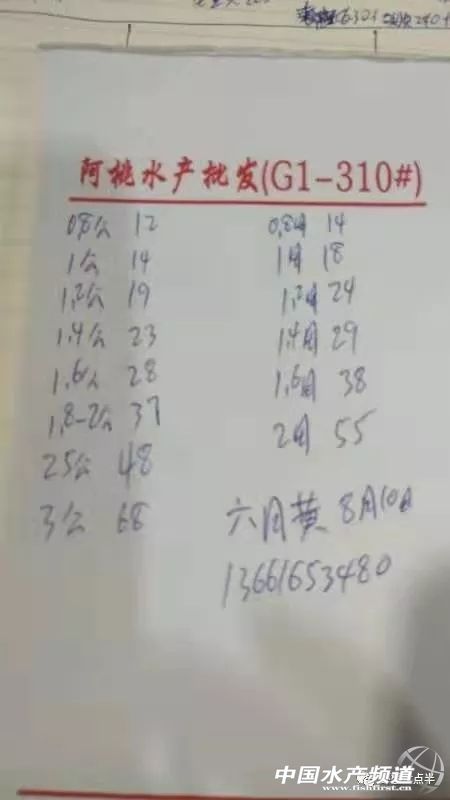 阿桃水产批发(G1-310#)
0,8公 12
1公 14
1,2公 19
1.4公 23
1,6公 28
1,8-2公 37
25公 48
3公 68
0,8母 14
1母 18
1,2母 24
1,4母 29
1,6母 38
2母 55
六月黄 8月10日
13661653480
中国水产频道
www.fishfirst.cn
点半